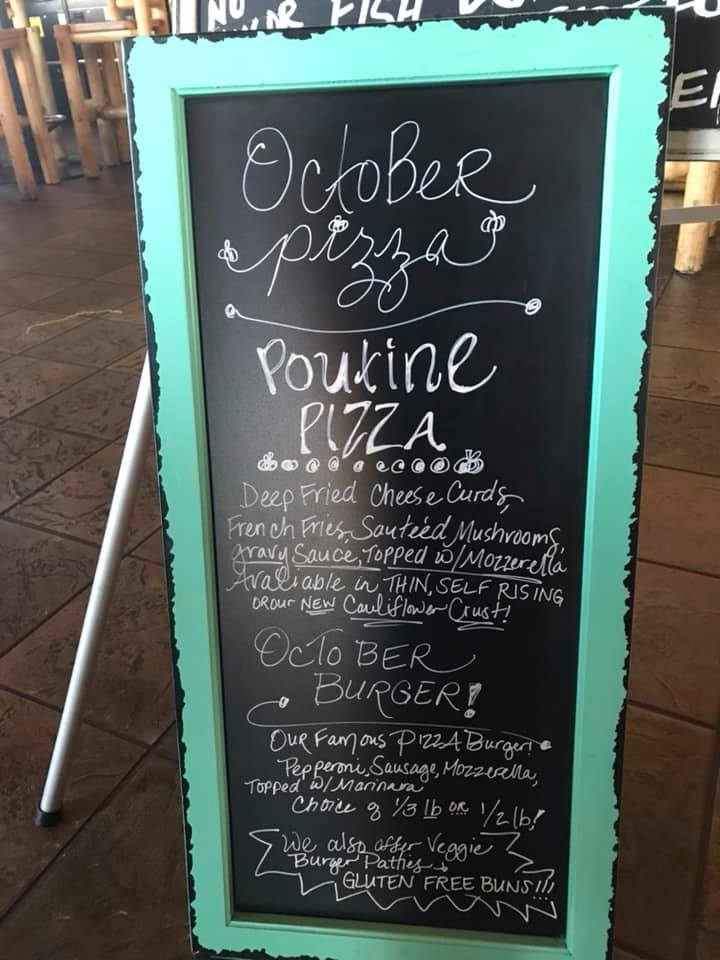 NO
FISH
October
pizza
Poutine
PIZZA
Deep Fried Cheese Curds,
French Fries, Sauteéd Mushrooms,
gravy Sauce, Topped w/ Mozzerella
Avaliable in THIN, SELF RISING
OR our NEW Cauliflower Crust!
OCTOBER
BURGER!
Our Famous PIZZA Burger!
Pepperoni, Sausage, Mozzerella,
Topped w/ Marinara
Choice of 1/3 lb or 1/2 lb!
We also offer Veggie
Burger Patties
GLUTEN FREE BUNS!!!